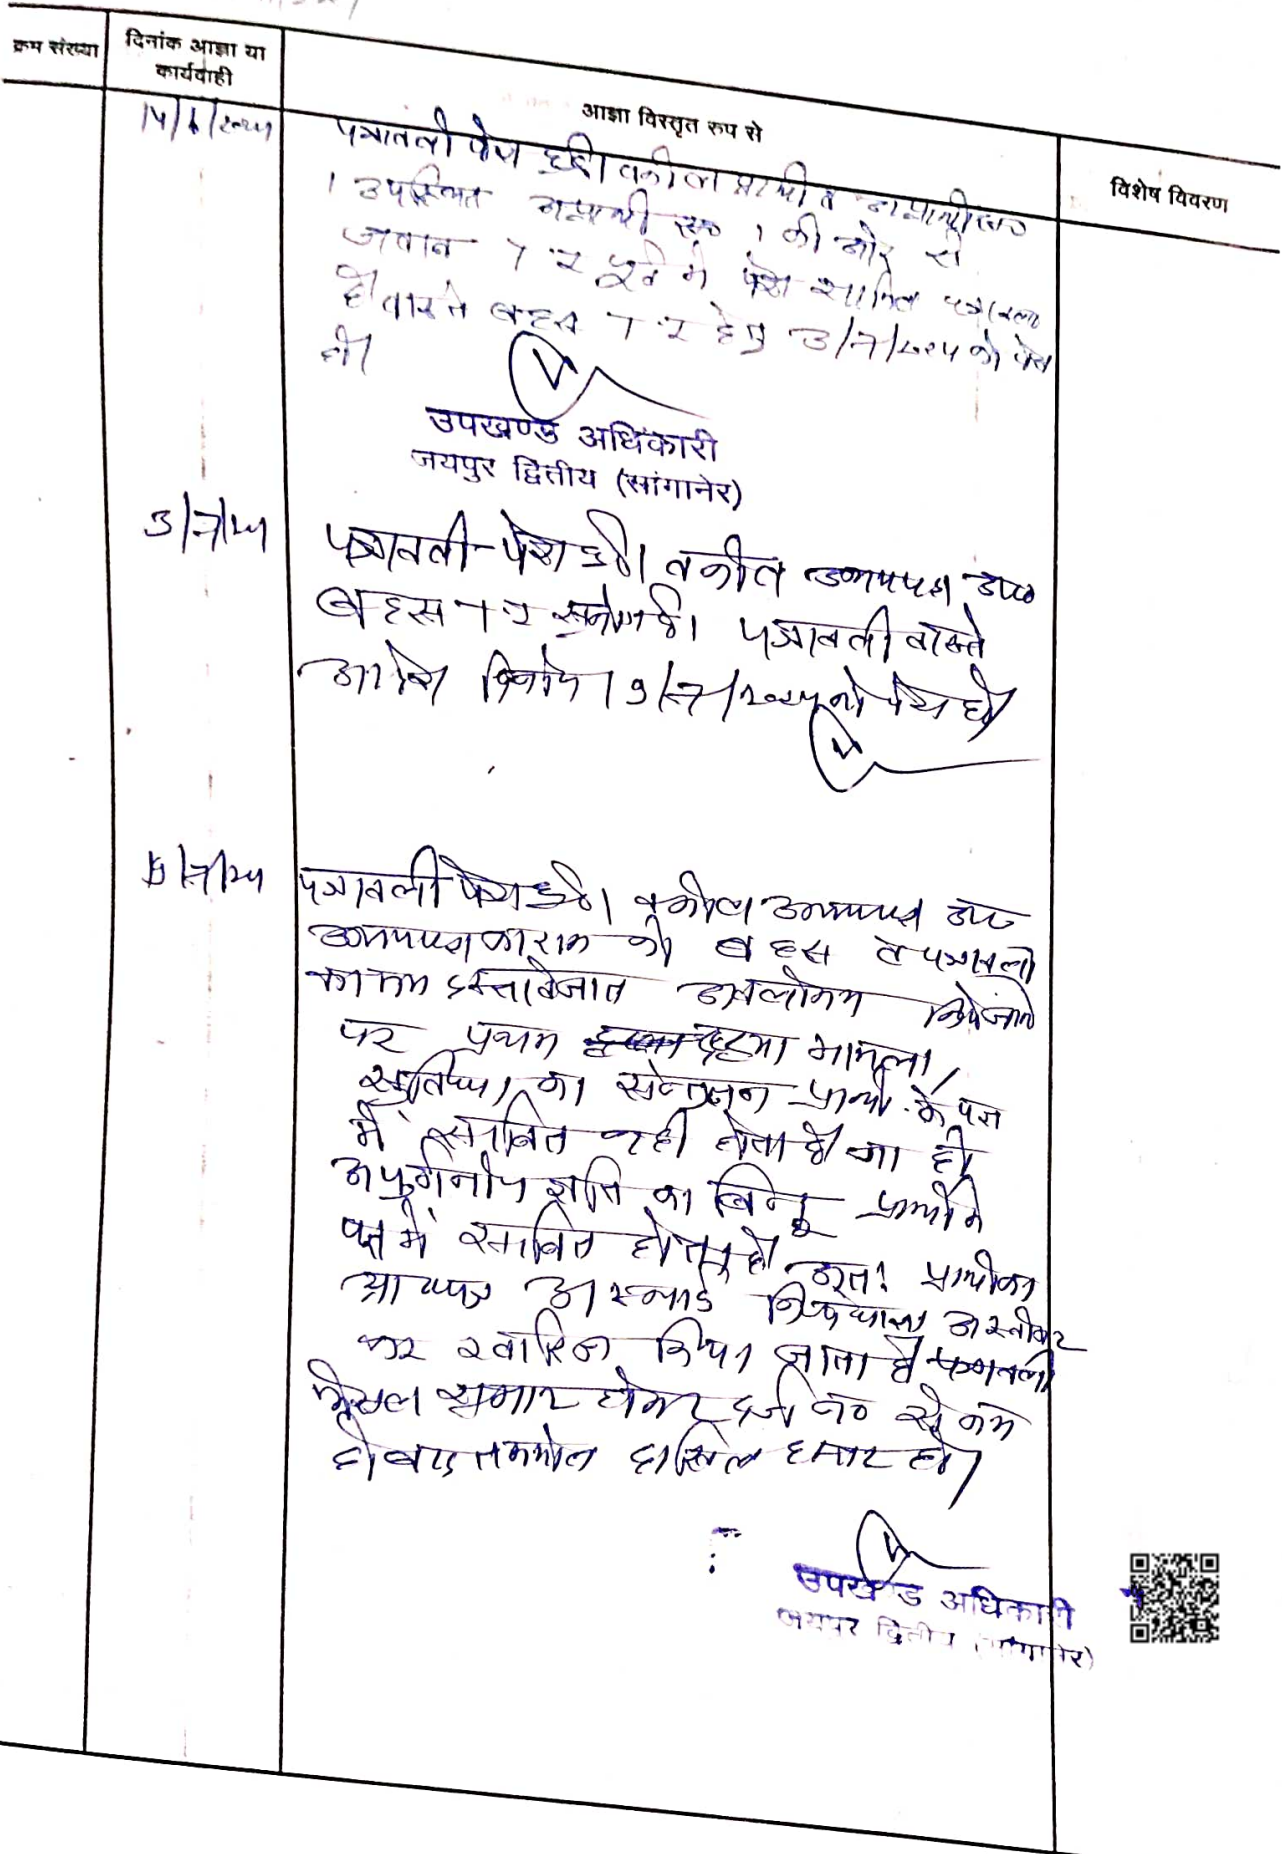 क्रम संख्या
दिनांक आज्ञा या
कार्यवाही
आज्ञा विस्तृत रुप से
विशेष विवरण
पत्रावली पेश हुई। वकील प्रार्थी व अप्रार्थी सं०
1 उपस्थित अप्रार्थी सं० 1 की ओर से
जवाब T.I पूर्व में पेश शामिल पत्रावली
है वास्ते बहस T.I हेतु 3/7/2025 को पेश
हो।
उपखण्ड अधिकारी
जयपुर द्वितीय (सांगानेर)
3/7/25
पत्रावली पेश हुई। वकील उभयपक्ष उप०
बहस T.I सुनी गई। पत्रावली वास्ते
आदेश दिनांक 9/7/2025 को पेश हो
पत्रावली पेश हुई। वकील उभयपक्ष उप०
उभयपक्षकारान की बहस व पत्रावली
का मय दस्तावेजात अवलोकन किये जाने
पर प्रथम दृष्टया मामला,
सुविधा का संतुलन प्रार्थी के पक्ष
में साबित नहीं होता है ना ही
अपूर्णनीय क्षति का बिन्दु प्रार्थी के
पक्ष में साबित होता है। अतः प्रार्थी का
प्रा० पत्र अस्थाई निषेधाज्ञा अस्वीकार
कर खारिज किया जाता है पत्रावली
फैसल शुमार होकर दर्ज नं० से कम
हो बाद तकमील दाखिल दफ्तर हो।
उपखण्ड अधिकारी
जयपुर द्वितीय (सांगानेर)